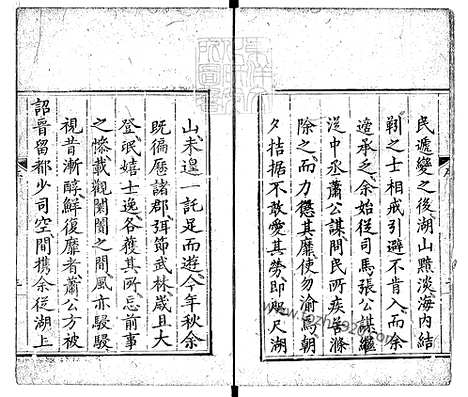 民遞變之後湖山黯淡海内結
剃之士相戒引避不肯入而余
適承乏余始從司馬張公謀繼
從中丞蕭公謀問民所疾苦滌
除之而力懲其靡使勿渝焉朝
夕拮据不敢愛其勞即咫尺湖
山未遑一託足而遊今年秋余
既徧歷諸郡弭節武林歲且大
登氓嬉士逸各獲其所忘前事
之慘載觀闤闠之間風亦駸駸
視昔漸醇鮮復靡者蕭公方被
詔晉留都少司空間携余從湖上